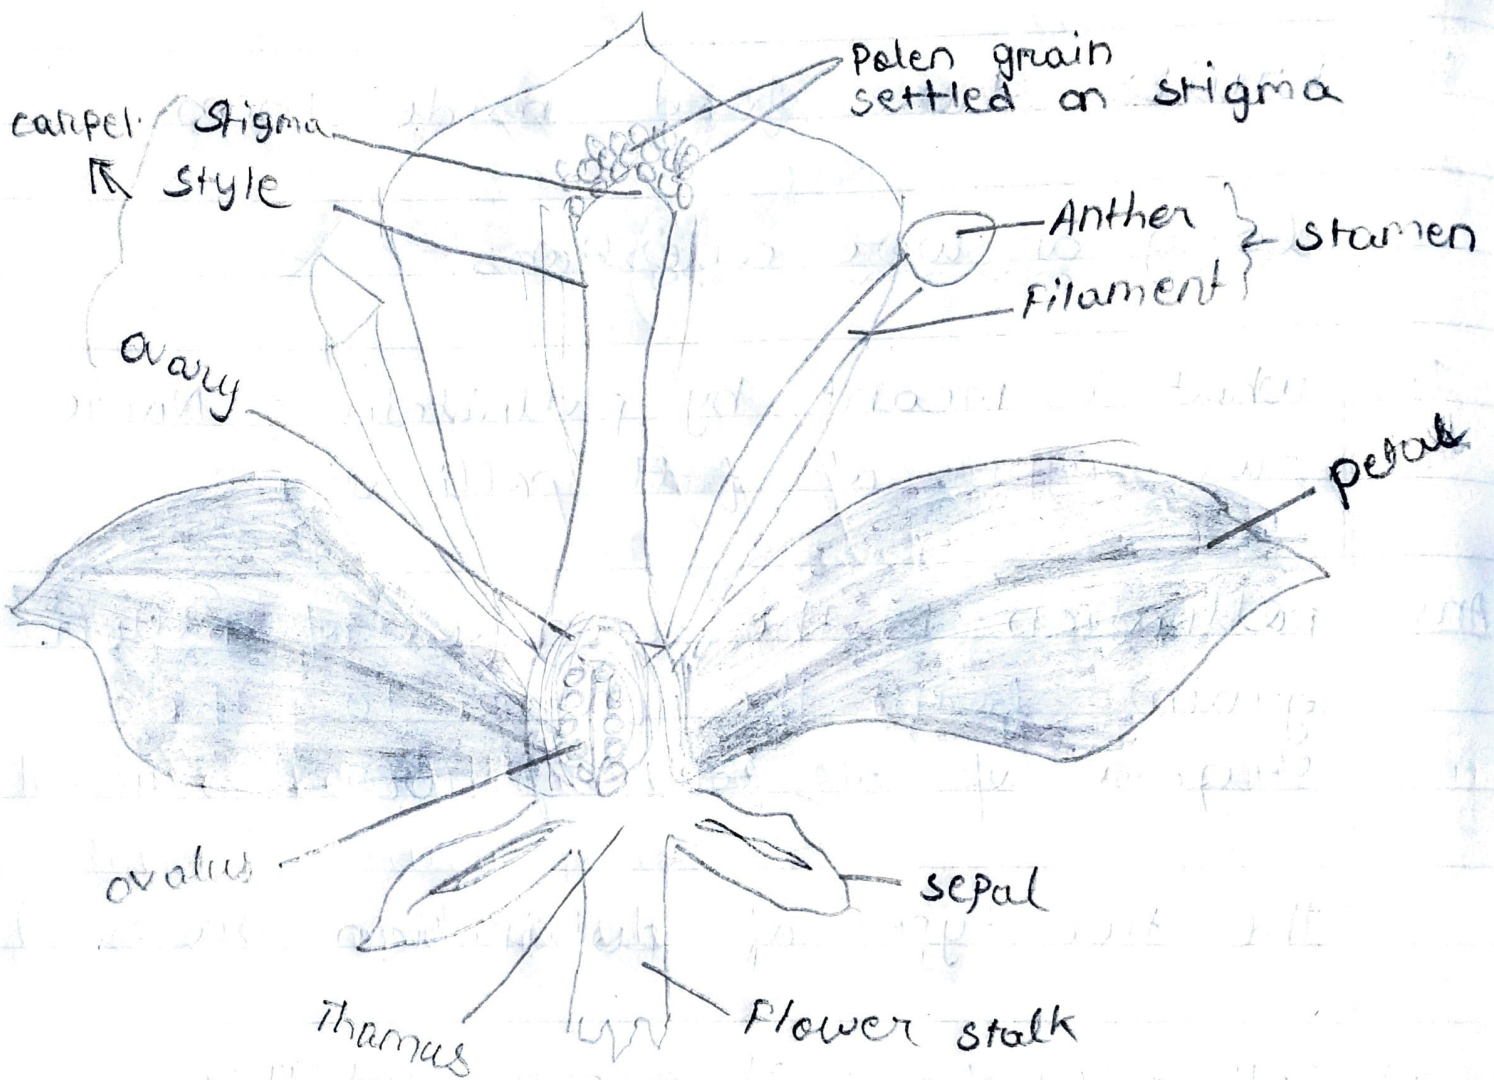 Polen grain
settled on stigma
carpel Stigma
style
Anther
Filament
stamen
ovary
petals
ovalus
sepal
Thamus
Flower stalk